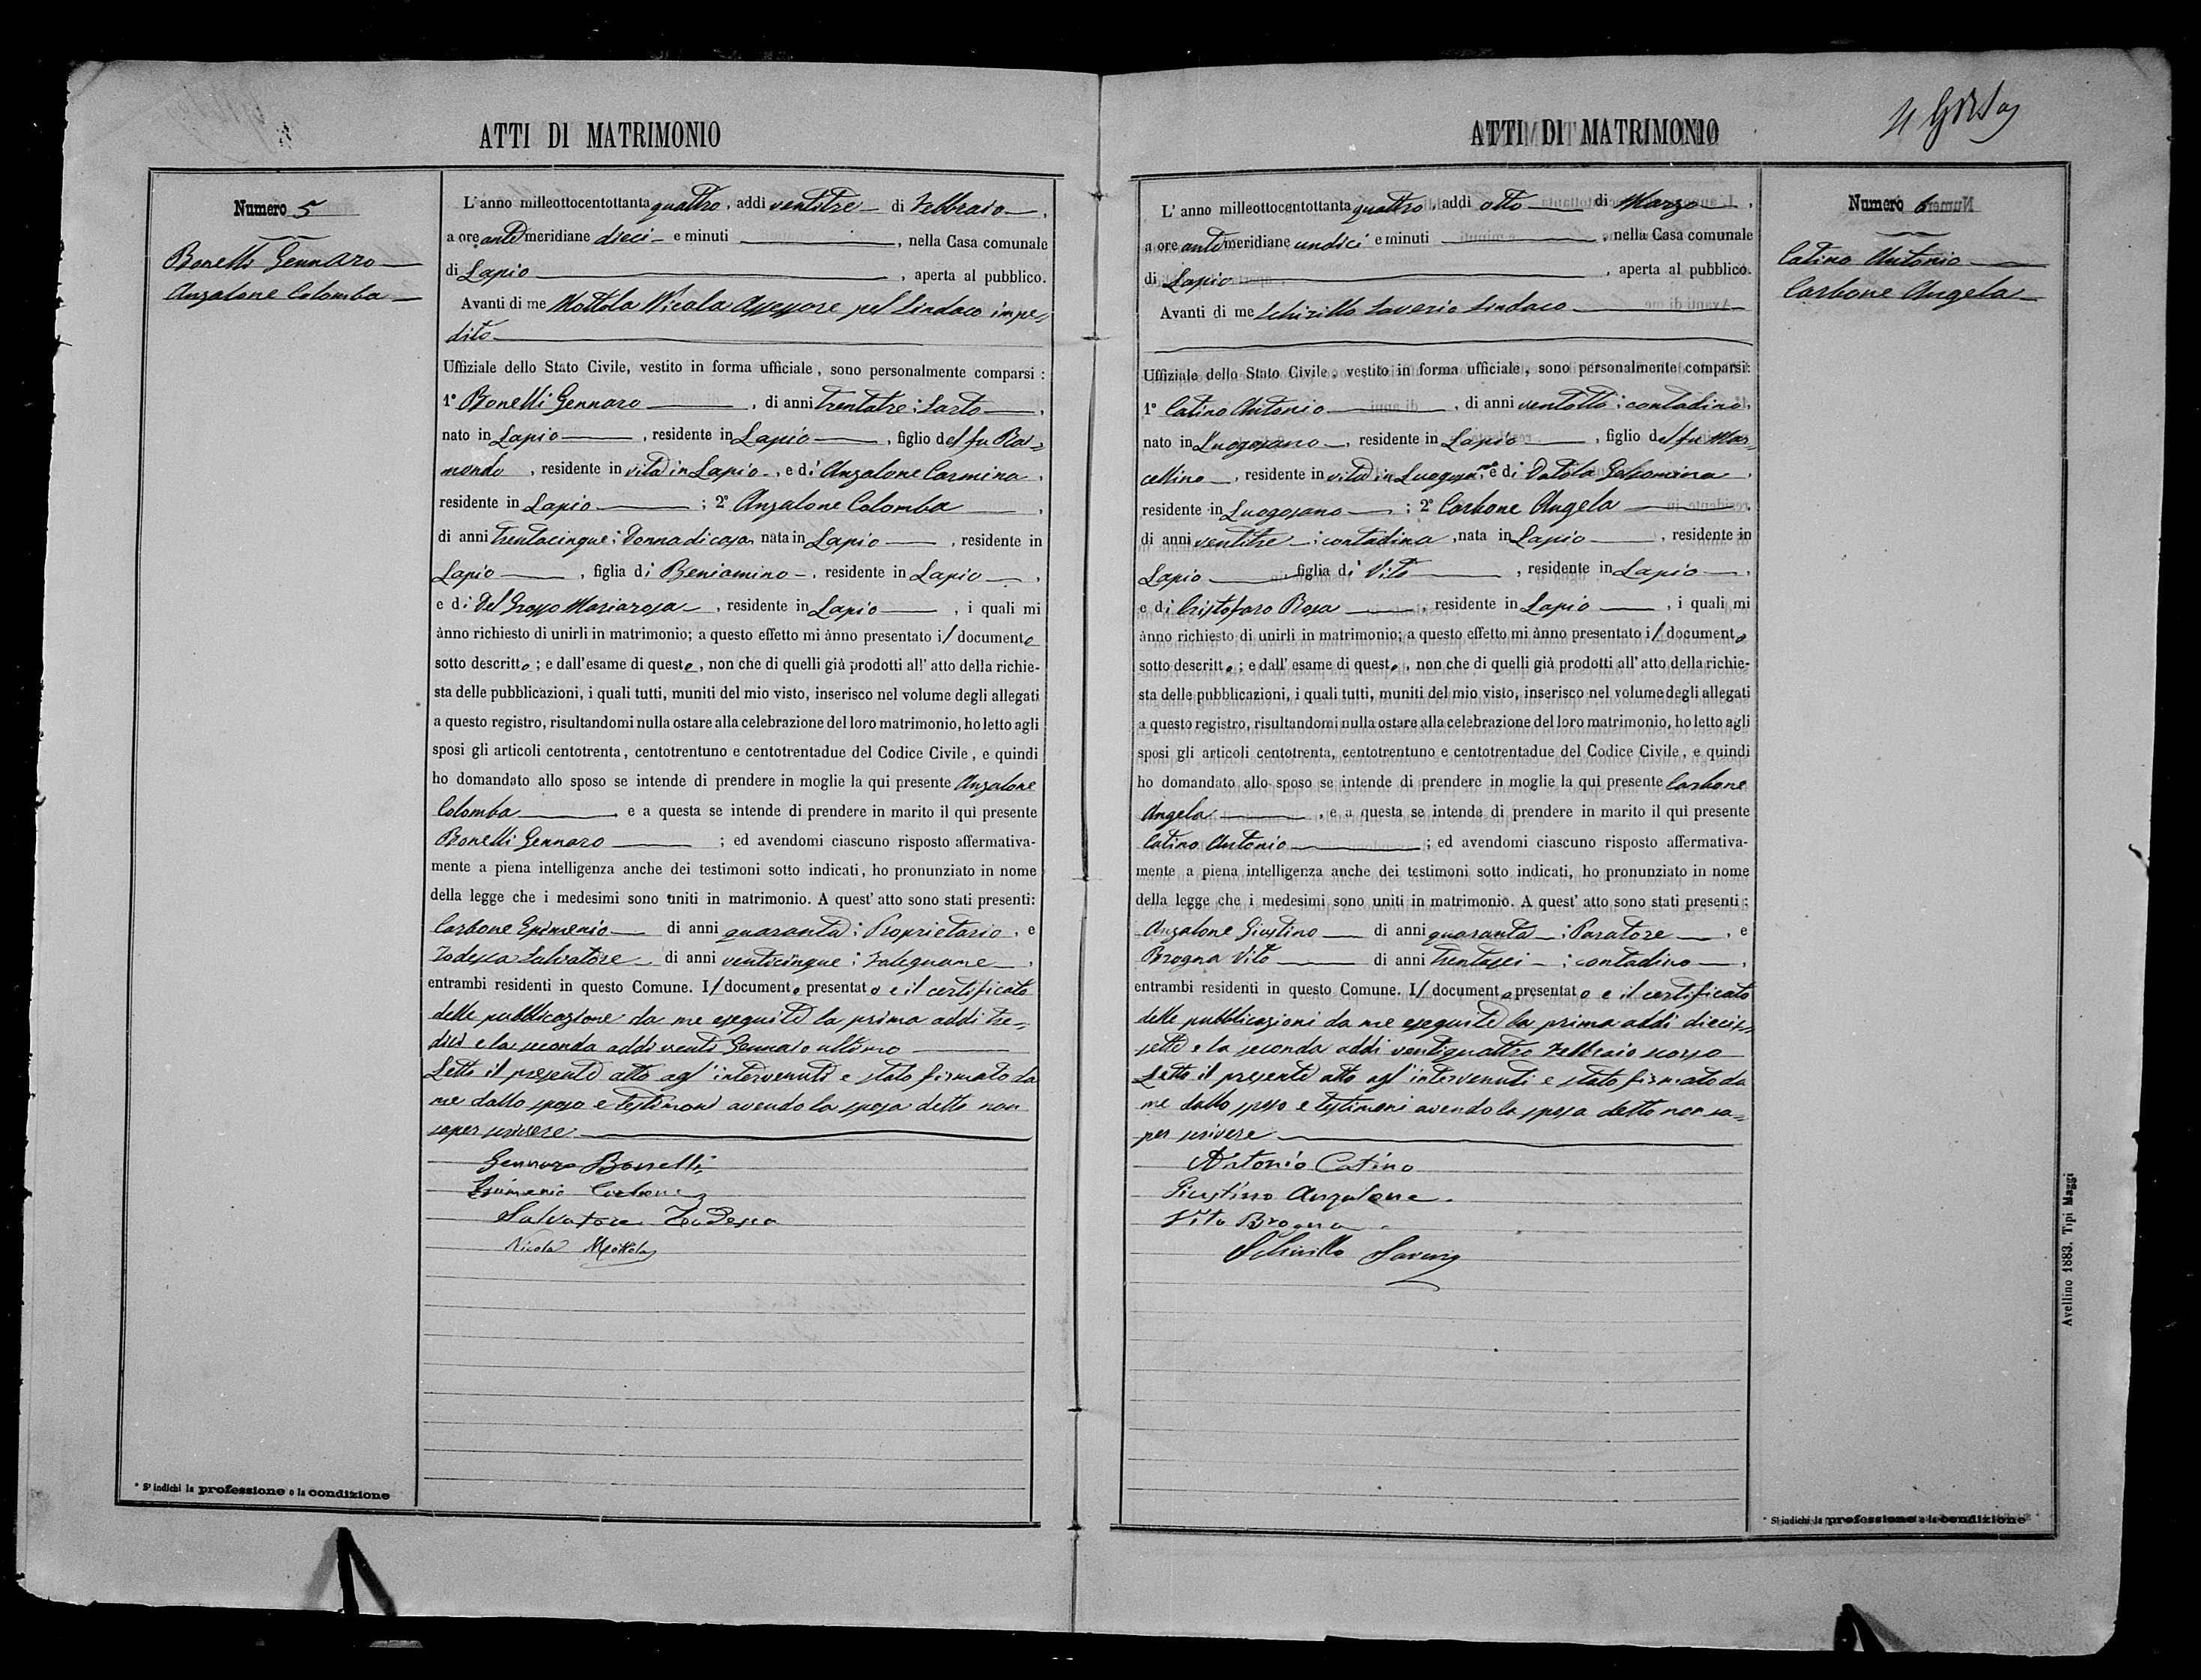 ATTI DI MATRIMONIO
Numero 5
Bonelli Gennaro
Anzalone Colomba
L'anno milleottocentottantaquattro, addi ventitre di Febbraio,
a ore antemeridiane dieci e minuti , nella Casa comunale
di Lapio , aperta al pubblico.
Avanti di me Mottola Nicola Assessore pel Sindaco impe=
dito
Uffiziale dello Stato Civile, vestito in forma ufficiale, sono personalmente comparsi:
1° Bonelli Gennaro , di anni trentatre; Sarto ,
nato in Lapio , residente in Lapio , figlio del fu Rai=
mondo , residente in vita in Lapio , e di Anzalone Carmina ,
residente in Lapio ; 2° Anzalone Colomba ,
di anni trentacinque; Donna di casa nata in Lapio , residente in
Lapio , figlia di Beniamino , residente in Lapio ,
e di Del Grosso Mariarosa , residente in Lapio , i quali mi
ànno richiesto di unirli in matrimonio; a questo effetto mi ànno presentato i/ documento
sotto descritto; e dall'esame di questo, non che di quelli già prodotti all'atto della richie-
sta delle pubblicazioni, i quali tutti, muniti del mio visto, inserisco nel volume degli allegati
a questo registro, risultandomi nulla ostare alla celebrazione del loro matrimonio, ho letto agli
sposi gli articoli centotrenta, centotrentuno e centotrentadue del Codice Civile, e quindi
ho domandato allo sposo se intende di prendere in moglie la qui presente Anzalone
Colomba e a questa se intende di prendere in marito il qui presente
Bonelli Gennaro ; ed avendomi ciascuno risposto affermativa-
mente a piena intelligenza anche dei testimoni sotto indicati, ho pronunziato in nome
della legge che i medesimi sono uniti in matrimonio. A quest'atto sono stati presenti:
Carbone Epimenio di anni quaranta; Proprietario , e
Todesca Salvatore di anni venticinque; Falegname ,
entrambi residenti in questo Comune. I/ documento presentato e il certificato
delle pubblicazione da me eseguite la prima addi tre=
dici e la seconda addi venti Gennaio ultimo
Letto il presente atto agl'intervenuti e stato firmato da
me dallo sposo e testimoni avendo la sposa detto non
saper scrivere
Gennaro Bonelli
Epimenio Carbone
Salvatore Todesca
Nicola Mottola
* S'indichi la professione o la condizione
ATTI DI MATRIMONIO
Numero 6
Catino Antonio
Carbone Angela
L'anno milleottocentottantaquattro, addi otto di Marzo ,
a ore antemeridiane undici e minuti , nella Casa comunale
di Lapio , aperta al pubblico.
Avanti di me Schirillo Saverio Sindaco
Uffiziale dello Stato Civile, vestito in forma ufficiale, sono personalmente comparsi:
1° Catino Antonio , di anni ventotto; contadino,
nato in Luogosano , residente in Lapio , figlio del fu Mar=
cellino , residente in vita in Luogosano, e di Gelsomina ,
residente in Luogosano ; 2° Carbone Angela ,
di anni ventitre ; contadina , nata in Lapio , residente in
Lapio , figlia di Vito , residente in Lapio ,
e di Cristofaro Rosa , residente in Lapio , i quali mi
ànno richiesto di unirli in matrimonio; a questo effetto mi ànno presentato i/ documento
sotto descritto; e dall'esame di questo, non che di quelli già prodotti all'atto della richie-
sta delle pubblicazioni, i quali tutti, muniti del mio visto, inserisco nel volume degli allegati
a questo registro, risultandomi nulla ostare alla celebrazione del loro matrimonio, ho letto agli
sposi gli articoli centotrenta, centotrentuno e centotrentadue del Codice Civile, e quindi
ho domandato allo sposo se intende di prendere in moglie la qui presente Carbone
Angela , e a questa se intende di prendere in marito il qui presente
Catino Antonio ; ed avendomi ciascuno risposto affermativa-
mente a piena intelligenza anche dei testimoni sotto indicati, ho pronunziato in nome
della legge che i medesimi sono uniti in matrimonio. A quest'atto sono stati presenti:
Anzalone Giustino di anni quaranta ; , e
Brogna Vito di anni trentasei ; contadino ,
entrambi residenti in questo Comune. I/ documento presentato e il certificato
delle pubblicazioni da me eseguite la prima addi dicias=
sette e la seconda addi ventiquattro Febbraio scorso
Letto il presente atto agl'intervenuti e stato firmato da
me dallo sposo e testimoni avendo la sposa detto non sa=
per scrivere
Antonio Catino
Giustino Anzalone
Vito Brogna
Schirillo Saverio
* S'indichi la professione o la condizione
Avellino 1883. Tipi Maggi